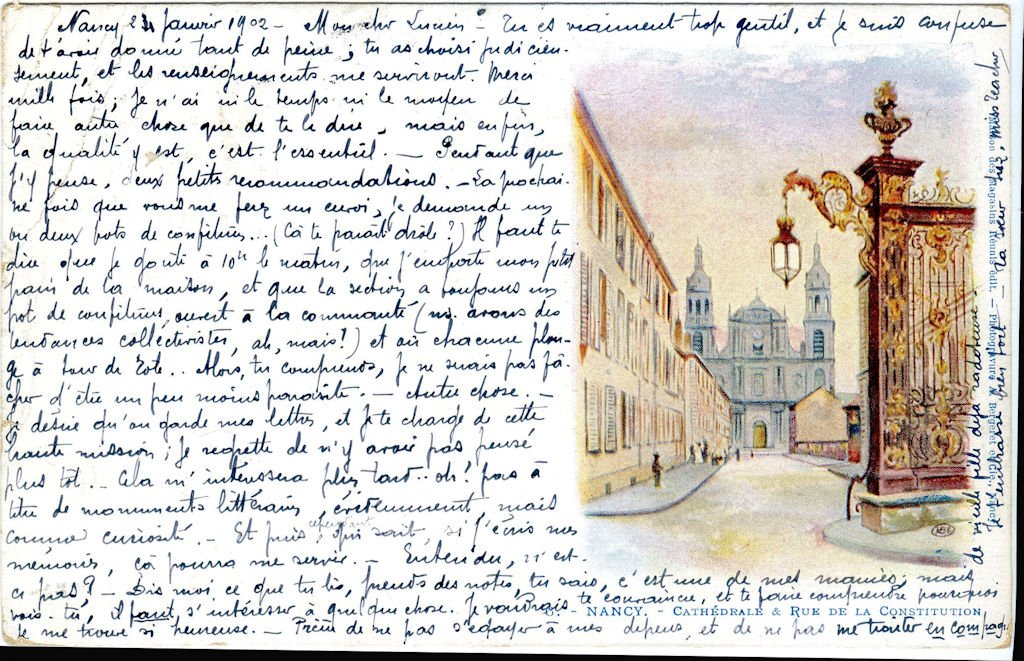 Nancy 24 Janvier 1902 - Mon cher Lucien - Tu es vraiment trop gentil, et je suis confuse
de t'avoir donné tant de peine; tu as choisi judicieu-
sement, et les renseignements me serviront. Merci
mille fois, je n'ai ni le temps ni le moyen de
faire autre chose que de te le dire, mais enfin,
la qualité y est, c'est l'essentiel. - Pendant que
j'y pense, deux petites recommandations. - La prochai-
ne fois que vous me ferez un envoi, je demande un
ou deux pots de confitures... (Ça te paraît drôle?) Il faut te
dire que je goûte à 10h le matin, que j'emporte mon petit
pain de la maison, et que la section a toujours un
pot de confitures, ouvert à la communauté (ns. avons des
tendances collectivistes, ah, mais!) et où chacune plon-
ge à tour de rôle.. Alors, tu comprends, je ne serais pas fâ-
chée d'être un peu moins parasite. - Autre chose. -
Je désire qu'on garde mes lettres, et je te charge de cette
haute mission; je regrette de n'y avoir pas pensé
plus tôt. - Cela m'intéressera plus tard.. oh! pas à
titre de monuments littéraires, évidemment, mais
comme curiosité. - Et puis, cependant, qui sait, si j'écris mes
mémoires, ça pourra me servir. - Entendu, n'est-
ce pas? - Dis moi ce que tu lis, prends des notes, tu sais, c'est une de mes manies, mais
vois-tu, il faut s'intéresser à quelque chose. Je voudrais te convaincre, et te faire comprendre pourquoi
je me trouve si heureuse. - Prière de ne pas s'égayer à mes dépens, et de ne pas me traiter en compag
de vieille fille déjà radoteuse.
Je t'embrasse bien fort - La soeur
- NANCY. - CATHÉDRALE & RUE DE LA CONSTITUTION
des Magasins Réunis édit. - Photogravure Bergeret et Cie, Nancy